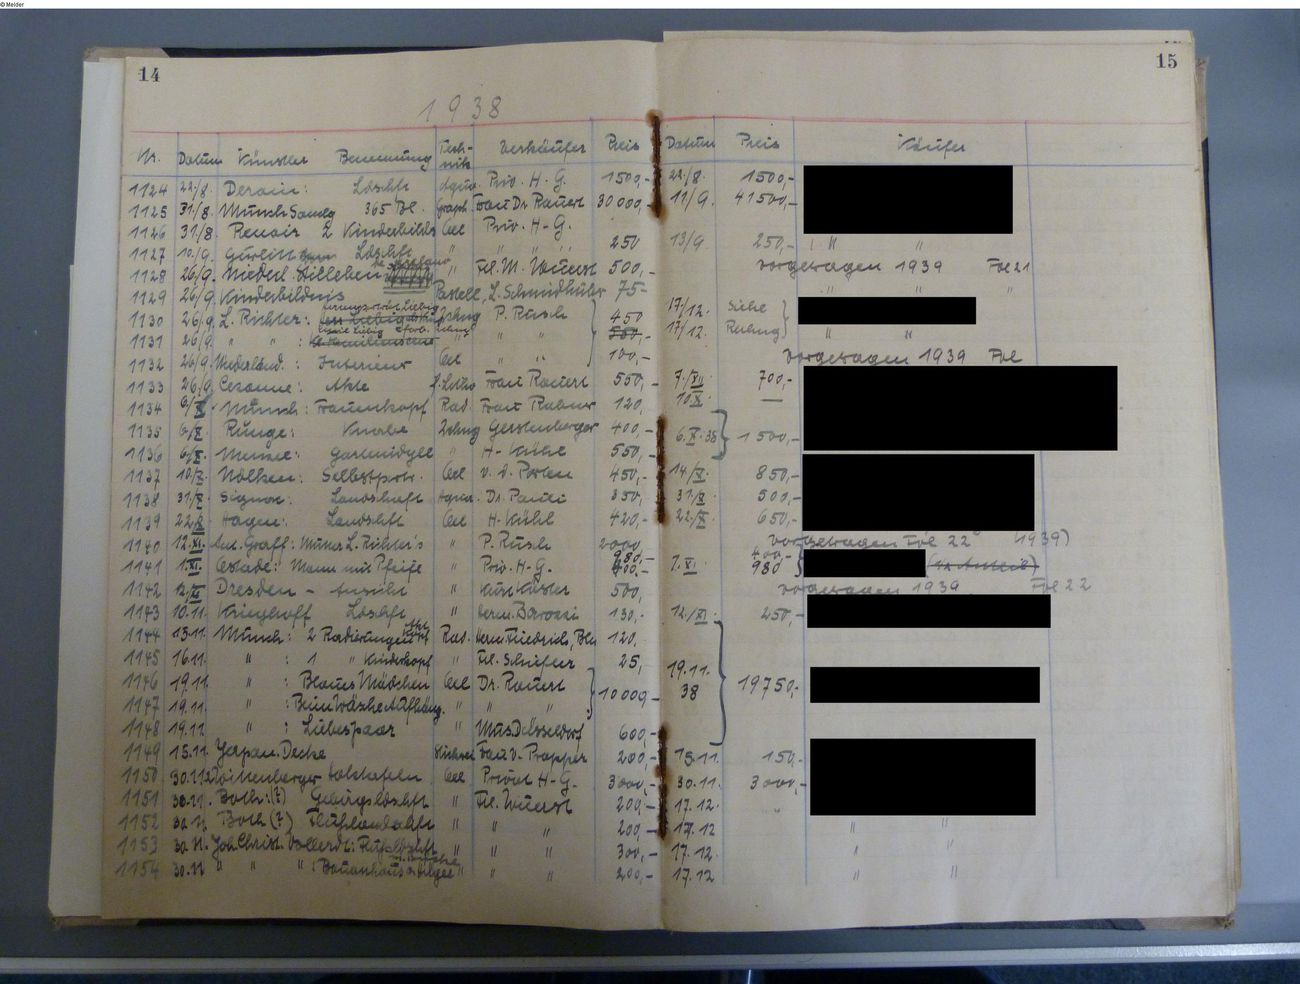 © Melder
14 15
1938
Nr. Datum Künstler Benennung Tech-nik Verkäufer Preis Datum Preis Käufer
1124 22/8. Derain: Ldschft Aqua. Priv. H. G. 1500,- 22./8. 1500,-
1125 31/8. Munch Samlg 365 Bl. Graph. Frau Dr. Rauert 30000,- 11/9. 41500,-
1126 31/8. Renoir 2 Kinderbilds Oel Priv. H-G.
1127 10/9. Gurlitt Ldschft " " " " 250 13/9 250,- " "
1128 26/9. Niederl. Stilleben " Frl. M. Wuerst 500,- vorgetragen 1939 Fol 21
1129 26/9. Kinderbildnis Pastell, L. Schmidhuber 75- " " "
1130 26/9. L. Richter: Zchng P. Rusch 450 17/12. Siehe
1131 26/9. " " : " " " 500,- 17/12. Rechng " "
1132 26/9. Niederländ.: Interieur Oel " " 100,- vorgetragen 1939 Fol
1133 26/9. Cezanne: Akte f. Litho Frau Rauert 550,- 7./XII 700,-
1134 6/X Munch: Frauenkopf Rad. Frau Rabner 120, 10.X.
1135 6/X Runge: Knabe Zchng Gerstenberger 400,- 6.X.38 1500,-
1136 6/X Menzel: Gartenidylle " H. Kühl 550,-
1137 10/X Nölken: Selbstportr. Oel v. d. Porten 450,- 14/X. 850,-
1138 31/X Signac: Landschaft Aqua. Dr. Pauli 350, 31/X 500,-
1139 22.X Hagen: Landschft Oel H. Kühl 420,- 22/X. 650,-
1140 12.XI. Ant. Graff: Mutter L. Richter's " P. Rusch 2000 vorgetragen Fol 22 (1939)
1141 1.XI. Ostade: Mann mit Pfeife " Priv. H-G. 980,- 7.XI. 400- 980
1142 12/XI Dresden - Ansicht " Kurt Köster 500, vorgetragen 1939 Fol 22
1143 10.11. Krieghoff Ldschft " Herm. Barozzi 130.- 12./XI. 250,-
1144 15.11. Munch: 2 Radierungen Rad. Herm. Friedrich, Bln 120,
1145 16.11. " : 1 " Kinderkopf " Frl. Schiefler 25,-
1146 19.11. " : Blaues Mädchen Oel Dr. Rauert 10000,- 19.11.38 19750,-
1147 19.11. " : Beim Wäsche Aufhäng. " " "
1148 19.11. " : Liebespaar " Mus. Düsseldorf 600,-
1149 15.11. Japan. Decke Stickrei Frau v. Propper 200,- 15.11. 150,-
1150 30.11. Wittenberger Oel Privat H-G. 3000,- 30.11. 3000,-
1151 30.11. Both: (?) Gebirgsldschft " Frl. Wuerst 200,- 17.12. "
1152 30.11. Both (?) Flußlandschft " " " 200,- 17.12 " "
1153 30.11. Joh. Christ. Vollerdt: Flußldschft " " " 300,- 17.12. " "
1154 30.11 " " " : Bauernhaus " " " 200,- 17.12 " "